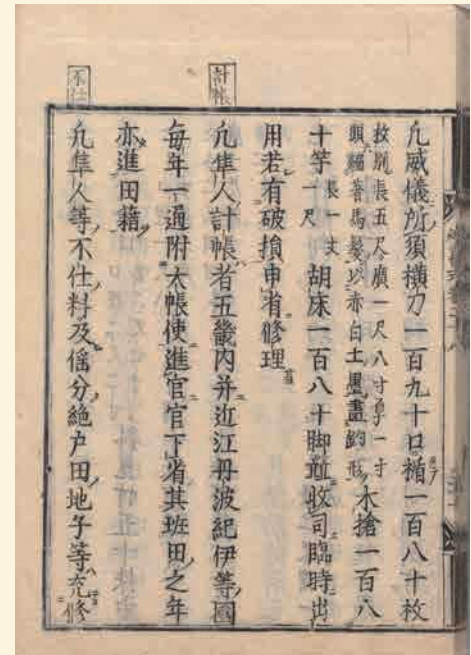 凡威儀所須横刀一百九十口楯一百八十枚
枚別長五尺廣一尺八寸厚一寸
頭編著馬髪以赤白土墨畫鈎形
木槍一百八
十竿
長一丈
一尺
胡床一百八十脚並收司臨時出
用若有破損申省修理
計帳
凡隼人計帳者五畿内并近江丹波紀伊等國
毎年一通附大帳使進官官下省其班田之年
亦進田籍
不仕
凡隼人等不仕料及傜分絶戸田地子等充修